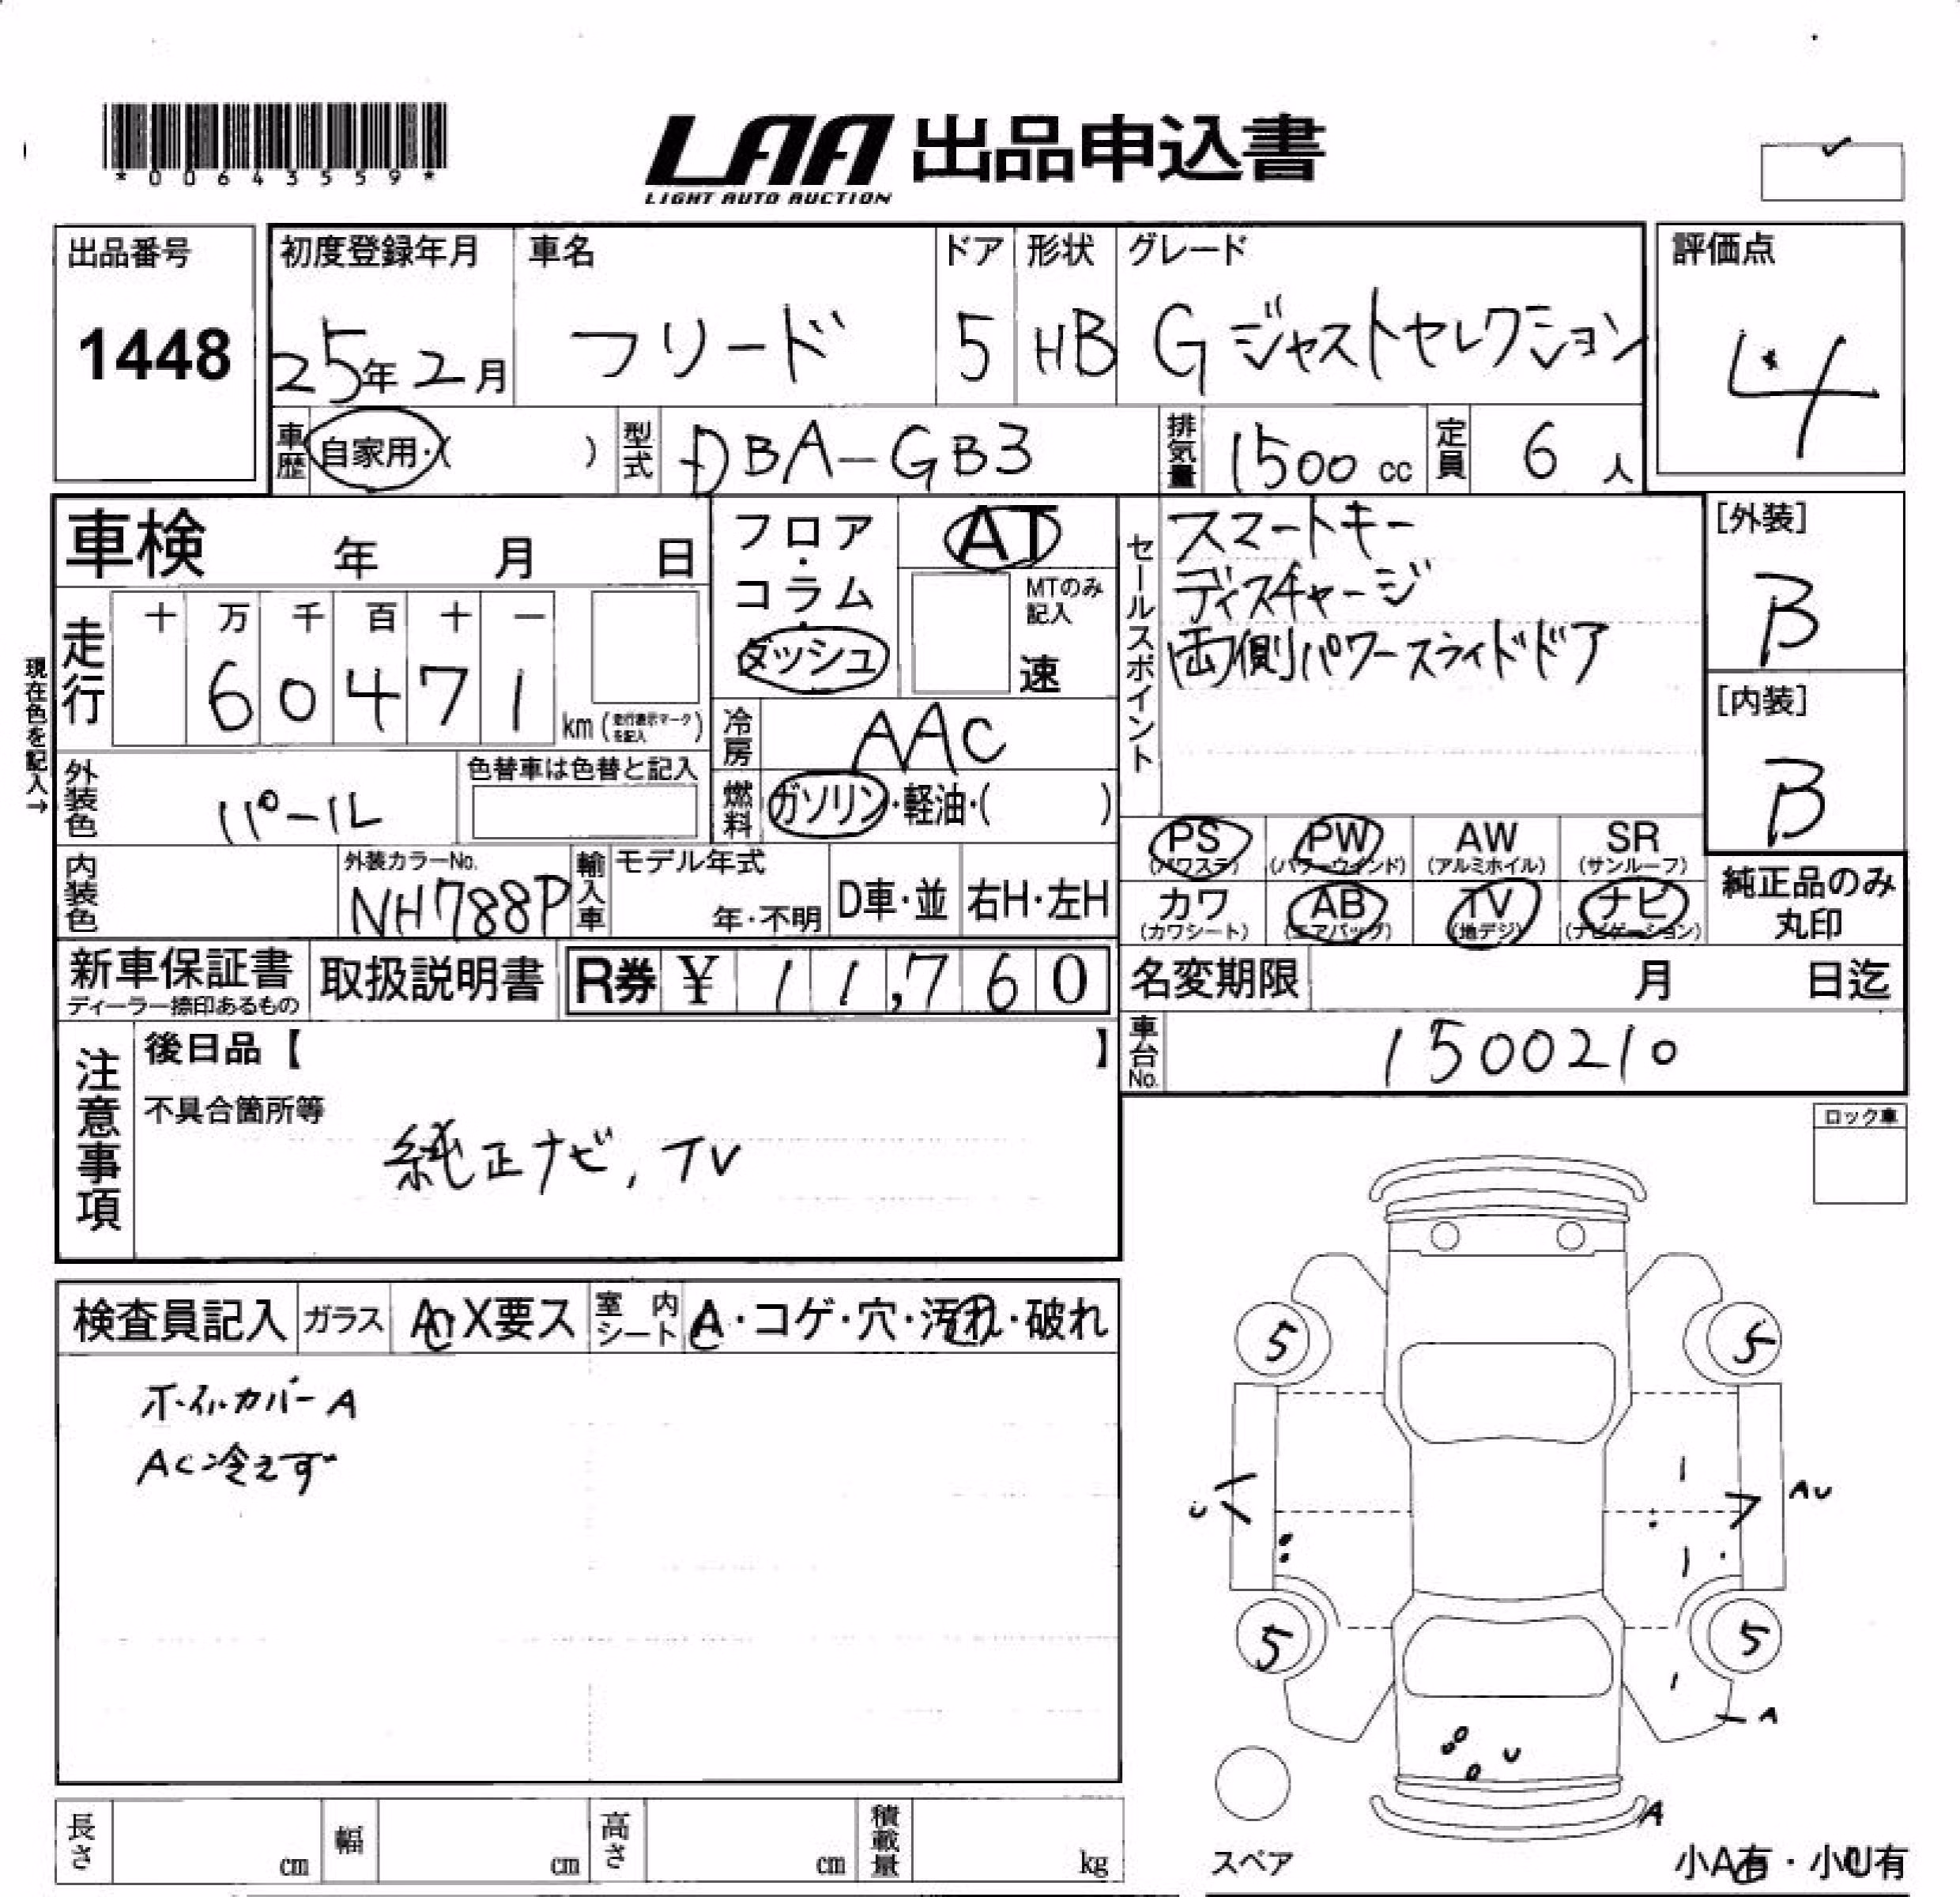 *00643559*
LAA 出品申込書
LIGHT AUTO AUCTION
出品番号
1448
初度登録年月
25年2月
車名
フリード
ドア
5
形状
HB
グレード
G ジャストセレクション
評価点
4
車歴 自家用・( )
型式 DBA-GB3
排気量 1500 cc
定員 6 人
車検 年 月 日
フロア・コラム・ダッシュ
AT
MTのみ記入
速
セールスポイント
スマートキー
ディスチャージ
両側パワースライドドア
[外装]
B
[内装]
B
現在色を記入→
走行
十 万 千 百 十 一
6 0 4 7 1
km (走行表示マークを記入)
冷房 AAC
外装色 パール
色替車は色替と記入
燃料 ガソリン・軽油・( )
PS (パワステ)
PW (パワーウインド)
AW (アルミホイル)
SR (サンルーフ)
カワ (カワシート)
AB (エアバッグ)
TV (地デジ)
ナビ (ナビゲーション)
純正品のみ
丸印
内装色
外装カラーNo.
NH788P
輸入車
モデル年式
年・不明
D車・並
右H・左H
新車保証書
ディーラー捺印あるもの
取扱説明書
R券 ¥ 11,760
名変期限 月 日迄
車台No. 1500210
注意事項
後日品【 】
不具合箇所等
純正ナビ, TV
ロック車
検査員記入
ガラス A・X要ス
室内シート A・コゲ・穴・汚れ・破れ
ホイルカバーA
AC冷えず
5
5
U
AU
5
5
A
U
A
スペア
小A有・小U有
長さ cm
幅 cm
高さ cm
積載量 kg